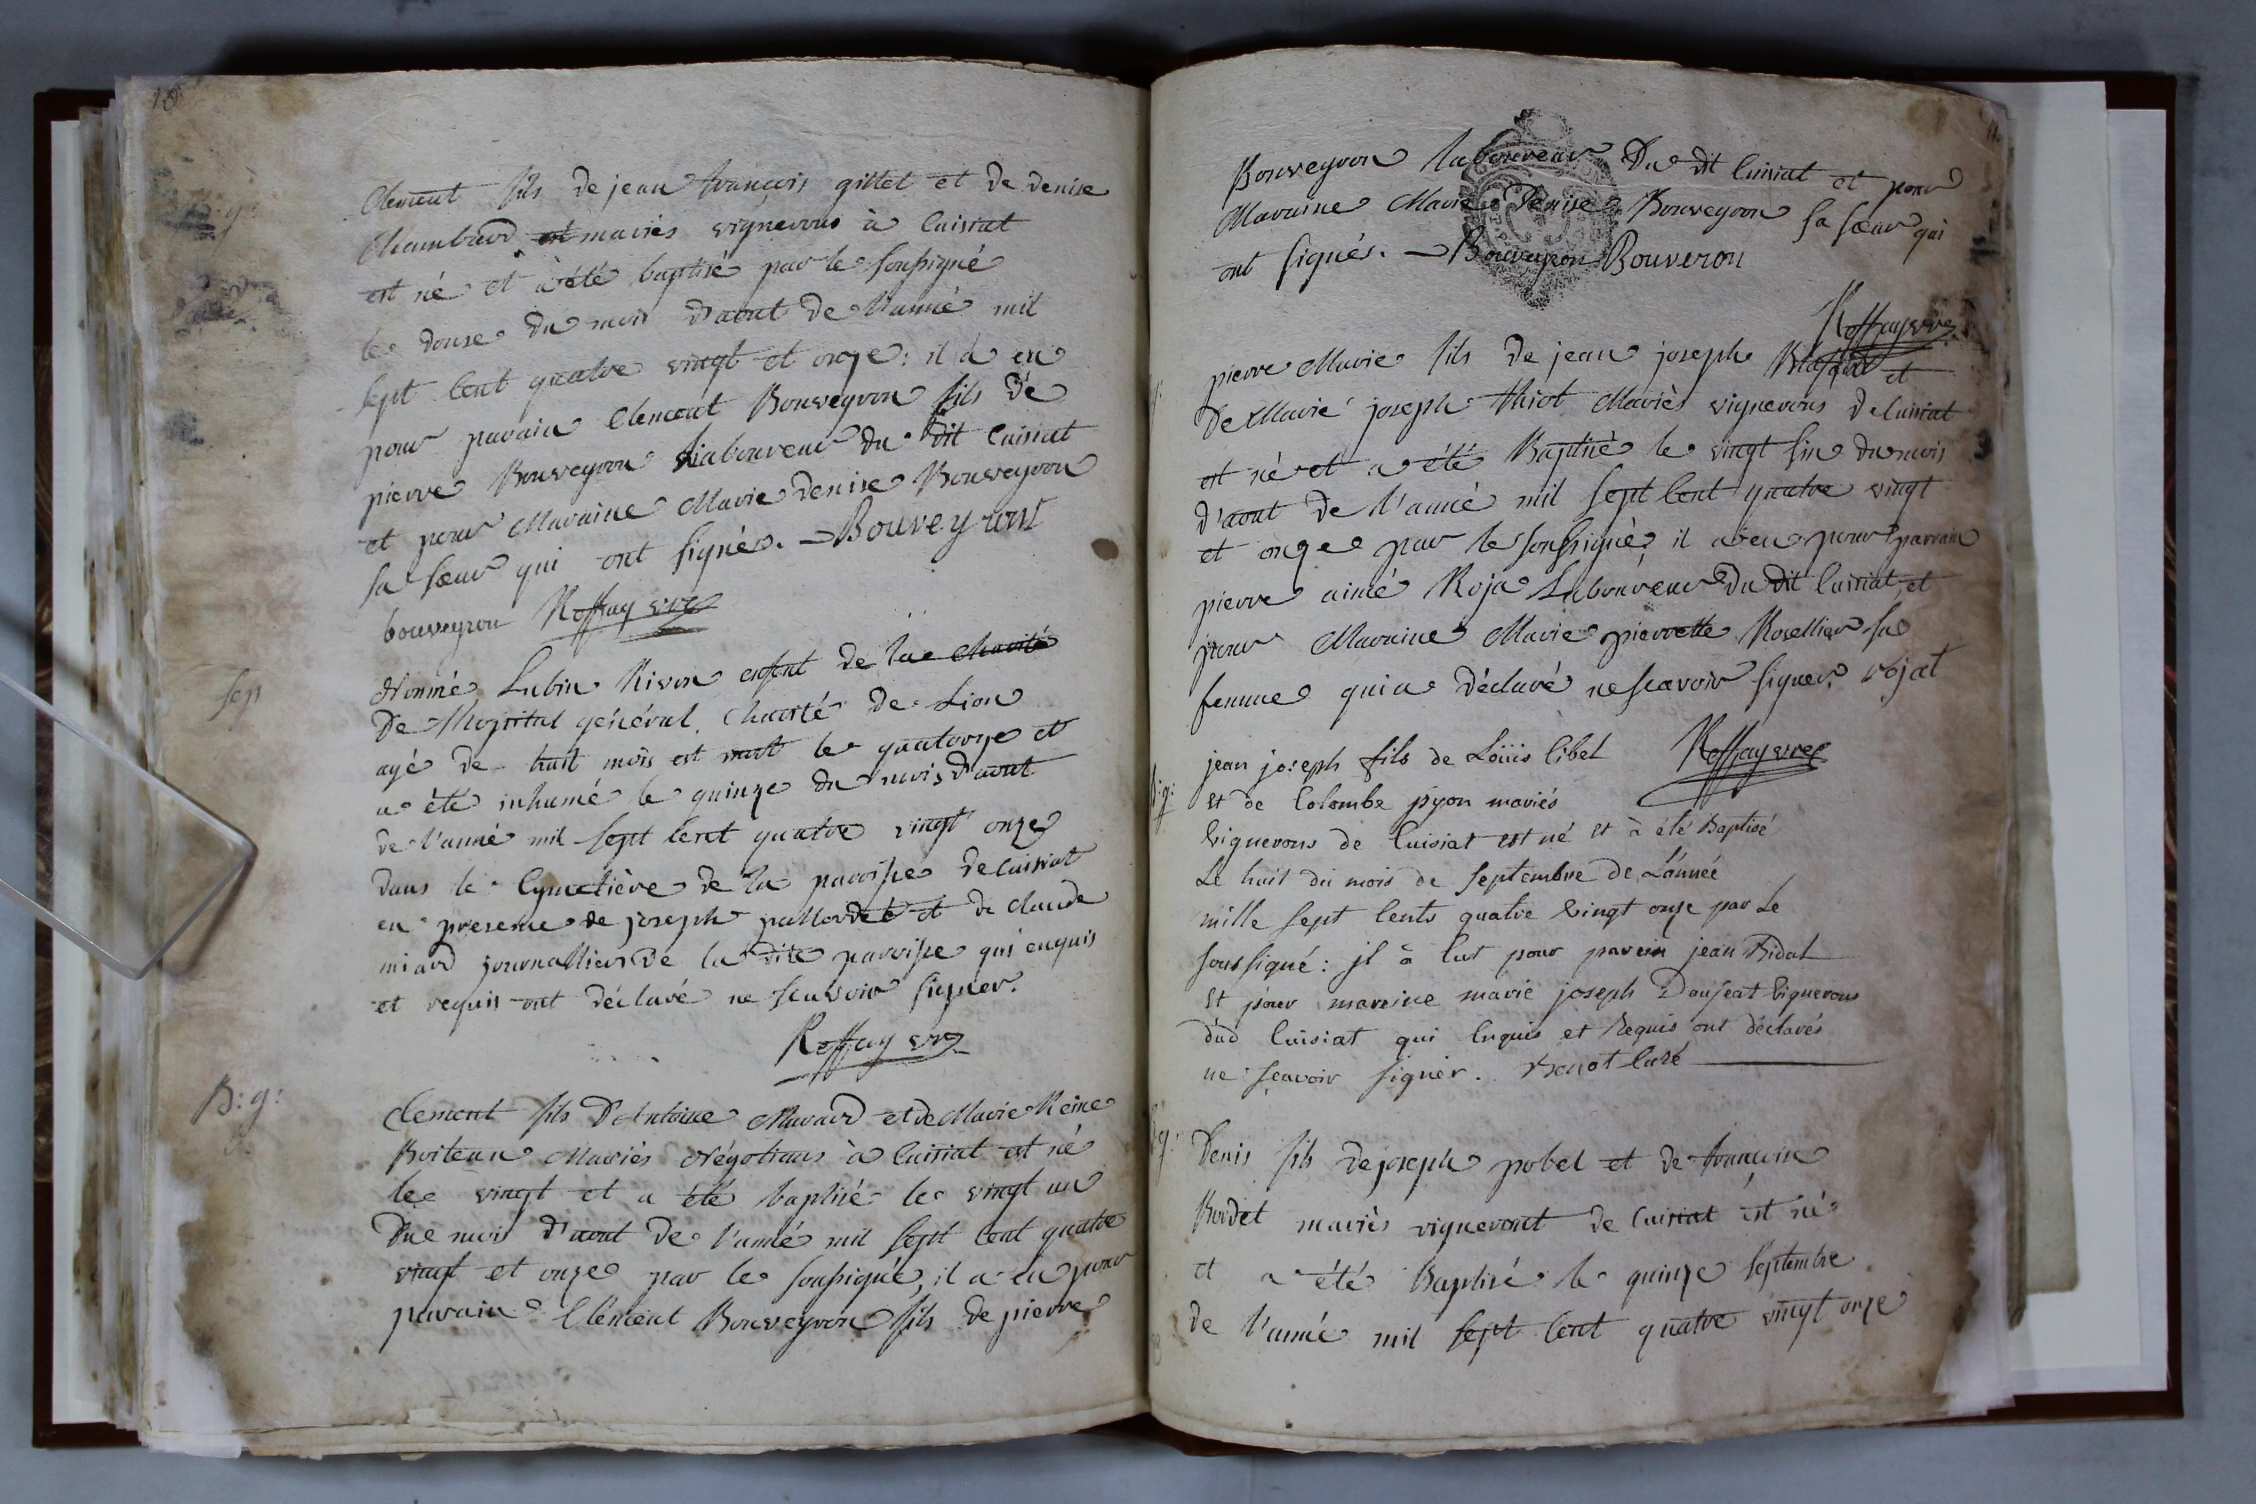 10
B: g:
Clement fils de jean françois gillet et de denise
Chambard est mariés vignerons à Cuisiat
est né et à été baptisé par le soussigné
le douse du mois d'aout de l'anné mil
sept Cent quatre vingt et onze: il à eu
pour parain Clement Bouveyron fils de
pierre Bouveyron Labouveur du dit Cuisiat
et pour Maraine Marie denise Bouveyron
sa sœur qui ont signés. - Bouveyron
bouveyron Roffay vre
Sep
Nommé Lubin Rivon enfent de la Charité
De l'hopital général Charité de Lion
agé de huit mois est mort le quatorze et
a été inhumé le quinze du mois d'aout
de l'anné mil sept Cent quatre vingt onze
dans le Cymetière de la paroisse de Cuisiat
en presence de joseph pallordet et de claude
miard journalliers de la dite paroisse qui enquis
et requis ont déclaré ne scavoir signer.
Roffay vre
B: g:
Clement fils D'Antoine Marard et de Marie Reine
Boiteau Mariés Négotians à Cuisiat est né
le vingt et a été baptisé le vingt un
Du mois d'aout de l'anné mil sept Cent quatre
vingt et onze par le soussigné, il a eu pour
parain Clément Bouveyron fils de pierre
Bouveyron laboureur Du dit Cuisiat et pour
Maraine Marie Denise Bouveyron sa sœur qui
ont signés. - Bouveyron Bouveron
Roffay vre
pierre Marie fils de jean joseph et
De Marie joseph thiot Mariés vignerons de Cuisiat
est né et a été Baptisé le vingt sin du mois
d'aout de l'anné mil sept Cent quatre vingt
et onze par le soussigné, il a eu pour parrain
pierre aimé Roja Laboureur Du dit Cuisiat, et
pour Maraine Marie pierrette Rosellier sa
femme qui a déclaré ne scavoir signer. rojat
Roffay vre
B: g:
jean joseph fils de Loüis libel
Et de Colombe pyon mariés
Vignerons de Cuisiat est né et à été Baptisé
Le huit du mois de septembre de L'année
mille sept Cents quatre Vingt onze par Le
soussigné: jl à Eut pour parein jean Bidat
Et pour mareine marie joseph Doujeat Vignerons
dud Cuisiat qui Enquis et Requis ont déclarés
ne sçavoir signer. Benot Curé
B g:
Denis fils de joseph pobel et de françoise
Bordet mariés vigneront de Cuisiat est né
et a été Baptisé le quinze septembre
de l'anné mil sept Cent quatre vingt onze